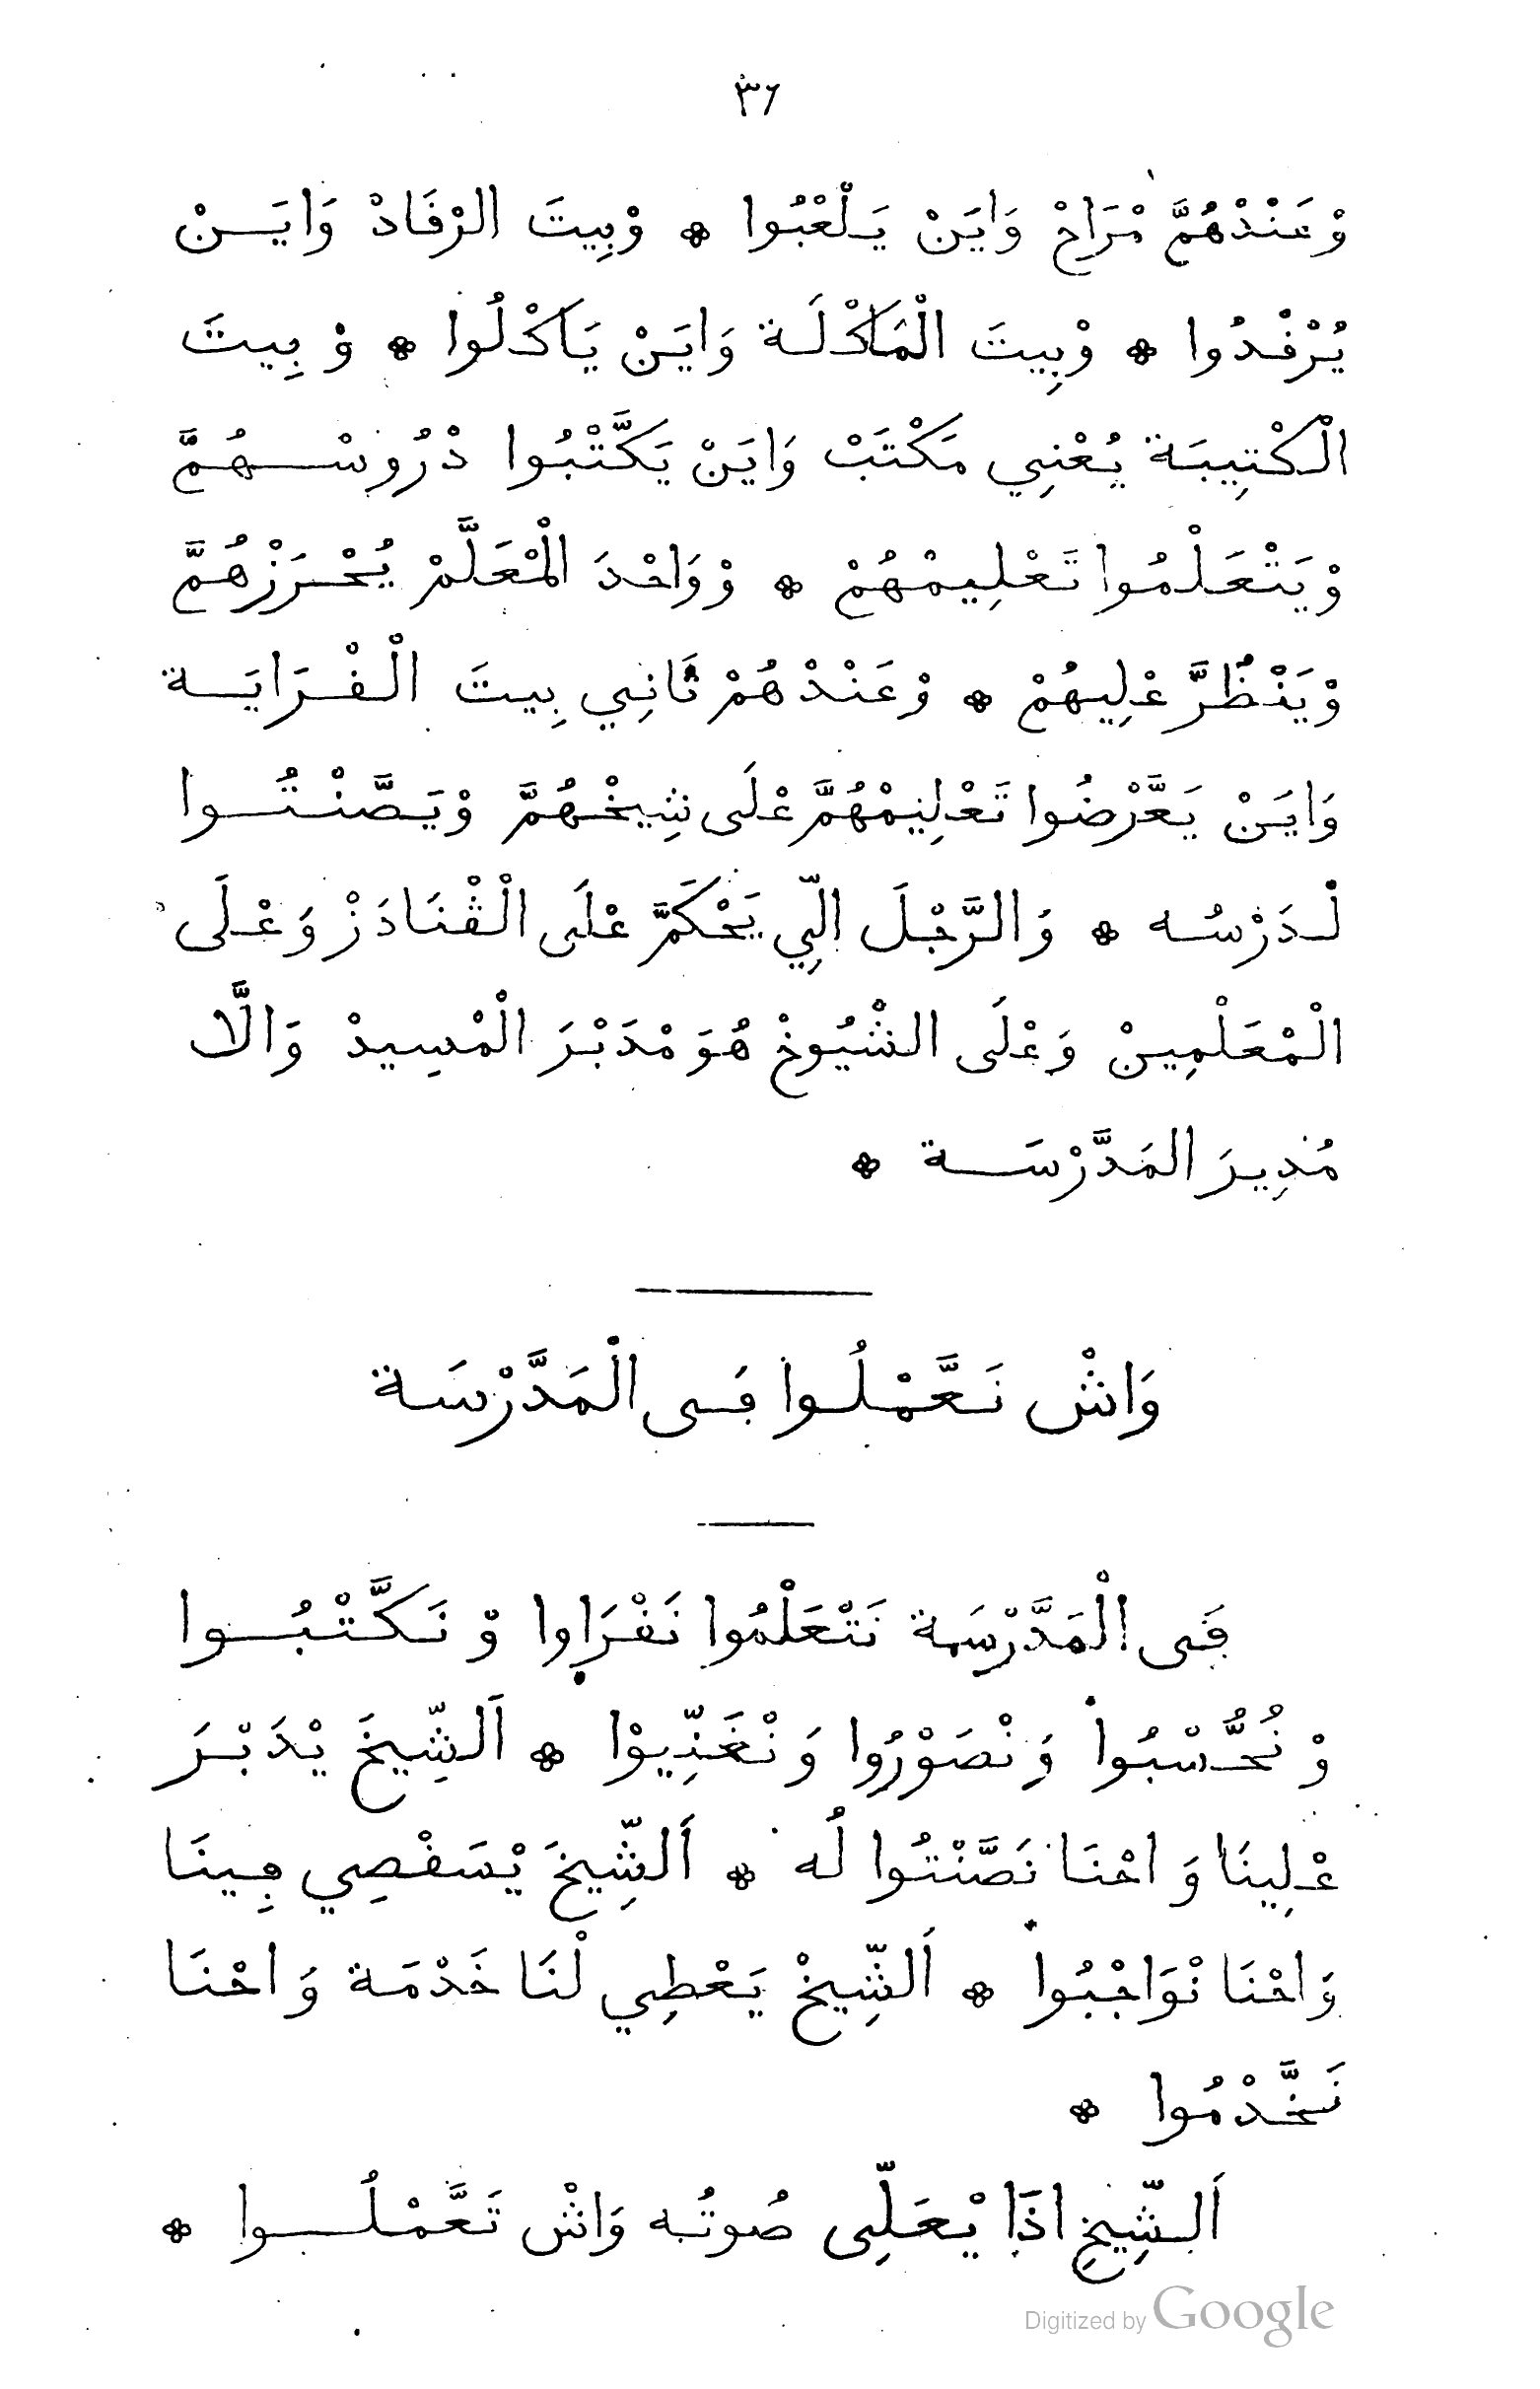 ٣٦
وْعَنْدْهُمَّ مْرَاحْ وَايَنْ يَلْعْبُوا * وْبِيتَ الرْقَادْ وَايَنْ
يُرْقْدُوا * وْبِيتَ الْمَاكْلَة وَايَنْ يَاكْلُوا * وْبِيتَ
الْكْتِيبَة يُعْنِي مَكْتَبْ وَايَنْ يَكَّتْبُوا دْرُوسْهُمَّ
وْيَتْعَلْمُوا تَعْلِيمْهُمْ * وْوَاحْدَ الْمْعَلَّمْ يُحْرَزْهُمَّ
وْيَنْظُرَّ عْلِيهُمْ * وْعَنْدْهُمْ ثَانِي بِيتَ الْقْرَايَة
وَايَنْ يَعَّرْضُوا تَعْلِيمْهُمَّ عْلَى شِيخْهُمَّ وْيَصَّنْتُوا
لْدَرْسُه * وَالرَّجْلَ الِّي يَحْكَمَّ عْلَى الْقْنَادَزْ وَعْلَى
الْمْعَلْمِينْ وَعْلَى الشْيُوخْ هُوَ مْدَبْرَ الْمْسِيدْ وَالَّا
مُدِيرَ المَدَّرْسَة *
وَاشْ نَعَّمْلُوا فَى الْمَدَّرْسَة
فَى الْمَدَّرْسَة نَتْعَلْمُوا نَقْرَاوا وْ نَكَّتْبُوا
وْ نُحُّسْبُوا وَنْصَوْرُوا وَنْغَنِّيوْا * اَلشِّيخَ يْدَبْرَ
عْلِينَا وَاحْنَا نَصَّنْتُوا لُه * اَلشِّيخَ يْسَقْصِي فِينَا
وَاحْنَا نْوَاجْبُوا * اَلشِّيخْ يَعْطِي لْنَا خَدْمَة وَاحْنَا
نَخَّدْمُوا *
اَلشِّيخِ اذَا يْعَلِّى صُوتُه وَاشْ تَعَّمْلُوا *
Digitized by Google